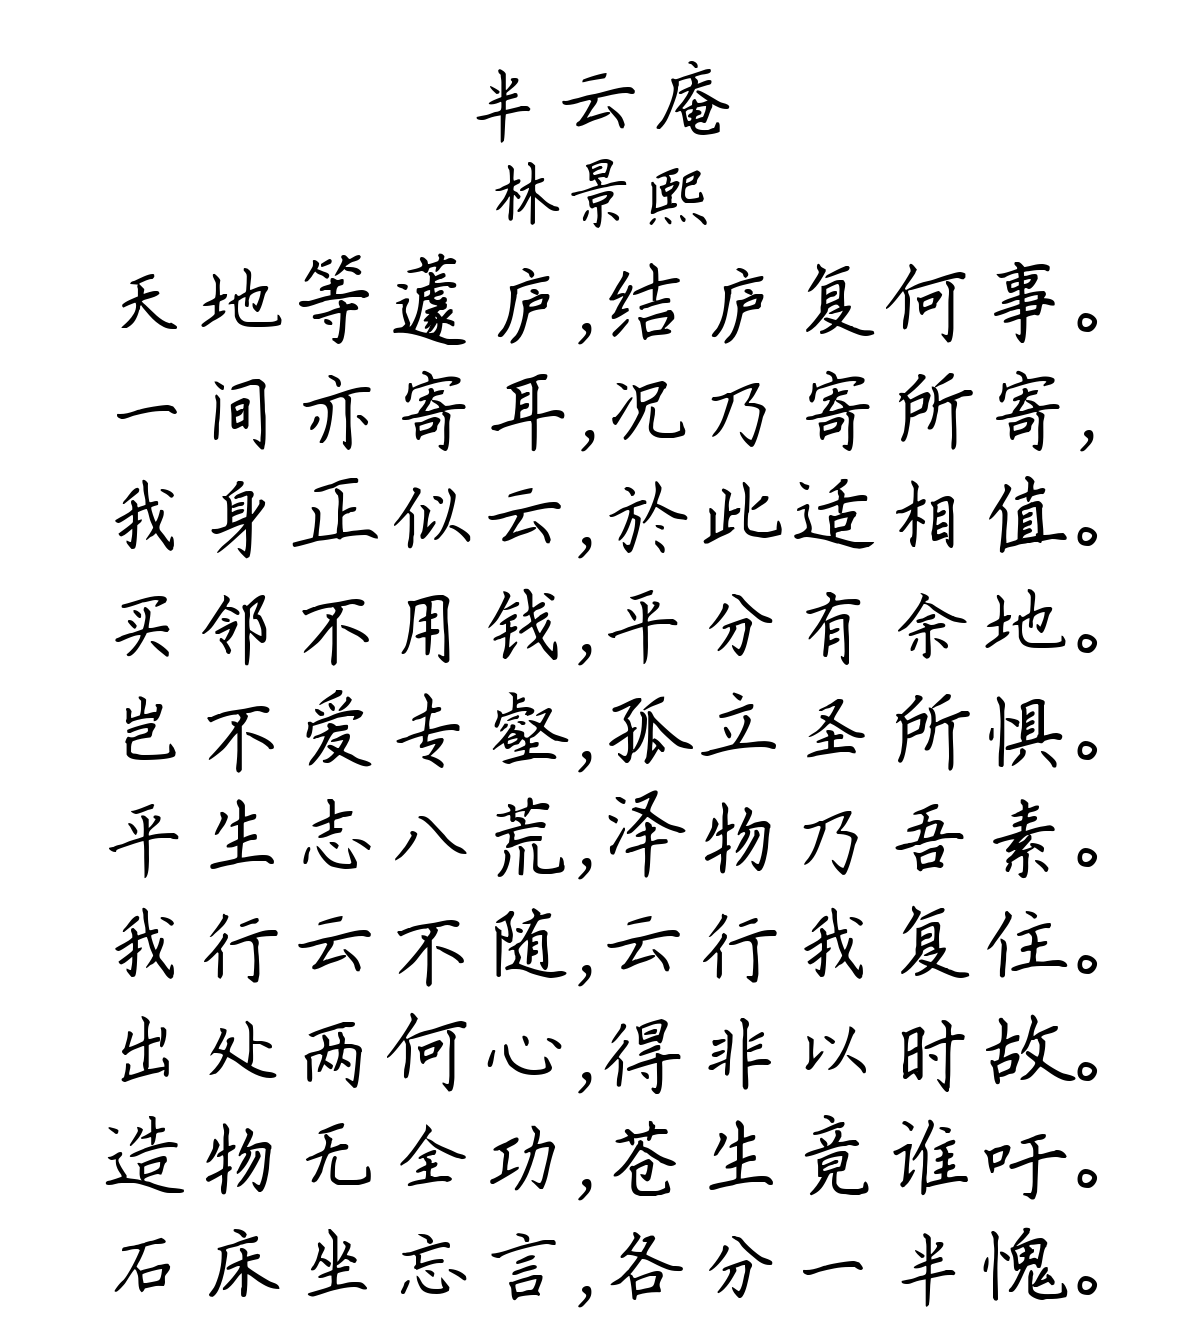 半云庵
林景熙
天地等蘧庐,结庐复何事。
一间亦寄耳,况乃寄所寄,
我身正似云,於此适相值。
买邻不用钱,平分有余地。
岂不爱专壑,孤立圣所惧。
平生志八荒,泽物乃吾素。
我行云不随,云行我复住。
出处两何心,得非以时故。
造物无全功,苍生竟谁吁。
石床坐忘言,各分一半愧。